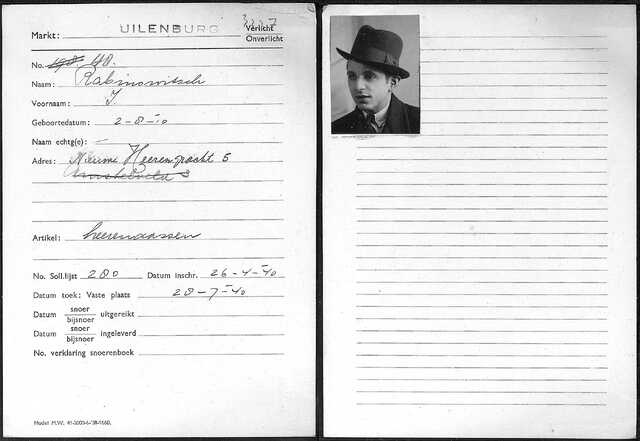 Markt: UILENBURG Verlicht
Onverlicht
No. 48.
Naam: Rabinowitsch
Voornaam: J.
Geboortedatum: 2-8-10
Naam echtg(e): —
Adres: Nieuwe Heerengracht 5
Artikel: heerendassen
No. Soll.lijst 280 Datum inschr. 26-4-40
Datum toek: Vaste plaats 28-7-40
Datum snoer
bijsnoer uitgereikt
Datum snoer
bijsnoer ingeleverd
No. verklaring snoerenboek
Model M.W.